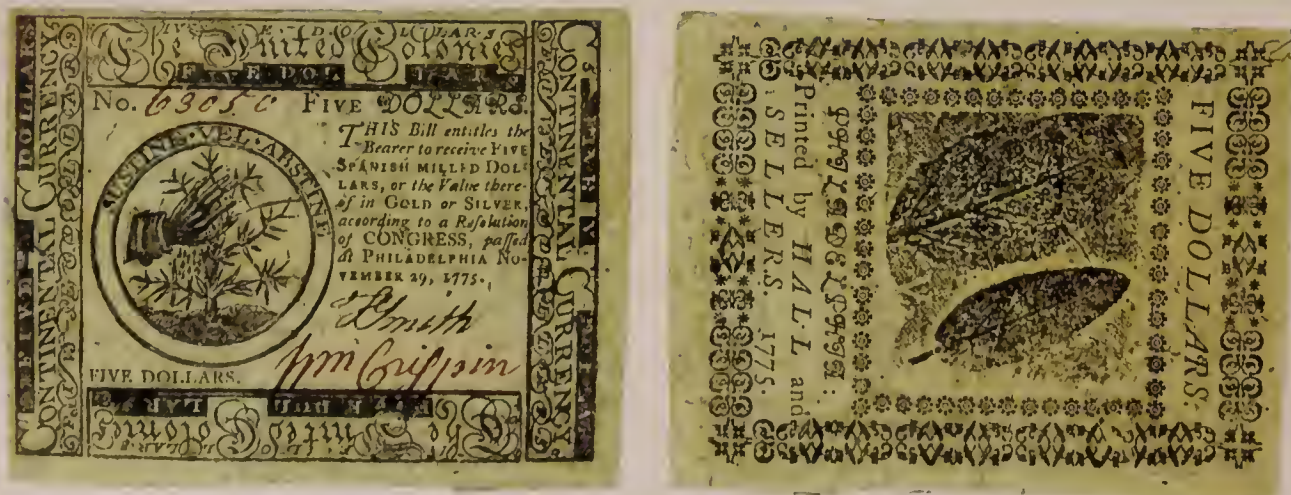 The United Colonies
FIVE DOLLARS
CONTINENTAL CURRENCY
No. 63050 FIVE DOLLARS
SUSTINE·VEL·ABSTINE
THIS Bill entitles the
Bearer to receive FIVE
SPANISH MILLED DOL-
LARS, or the Value there-
of in GOLD or SILVER,
according to a Reſolution
of CONGRESS, paſſed
at PHILADELPHIA NO-
VEMBER 29, 1775.
Smith
Wm Crispin
FIVE DOLLARS.
The United Colonies
CONTINENTAL CURRENCY
FIVE DOLLARS.
Printed by HALL and
SELLERS. 1775.